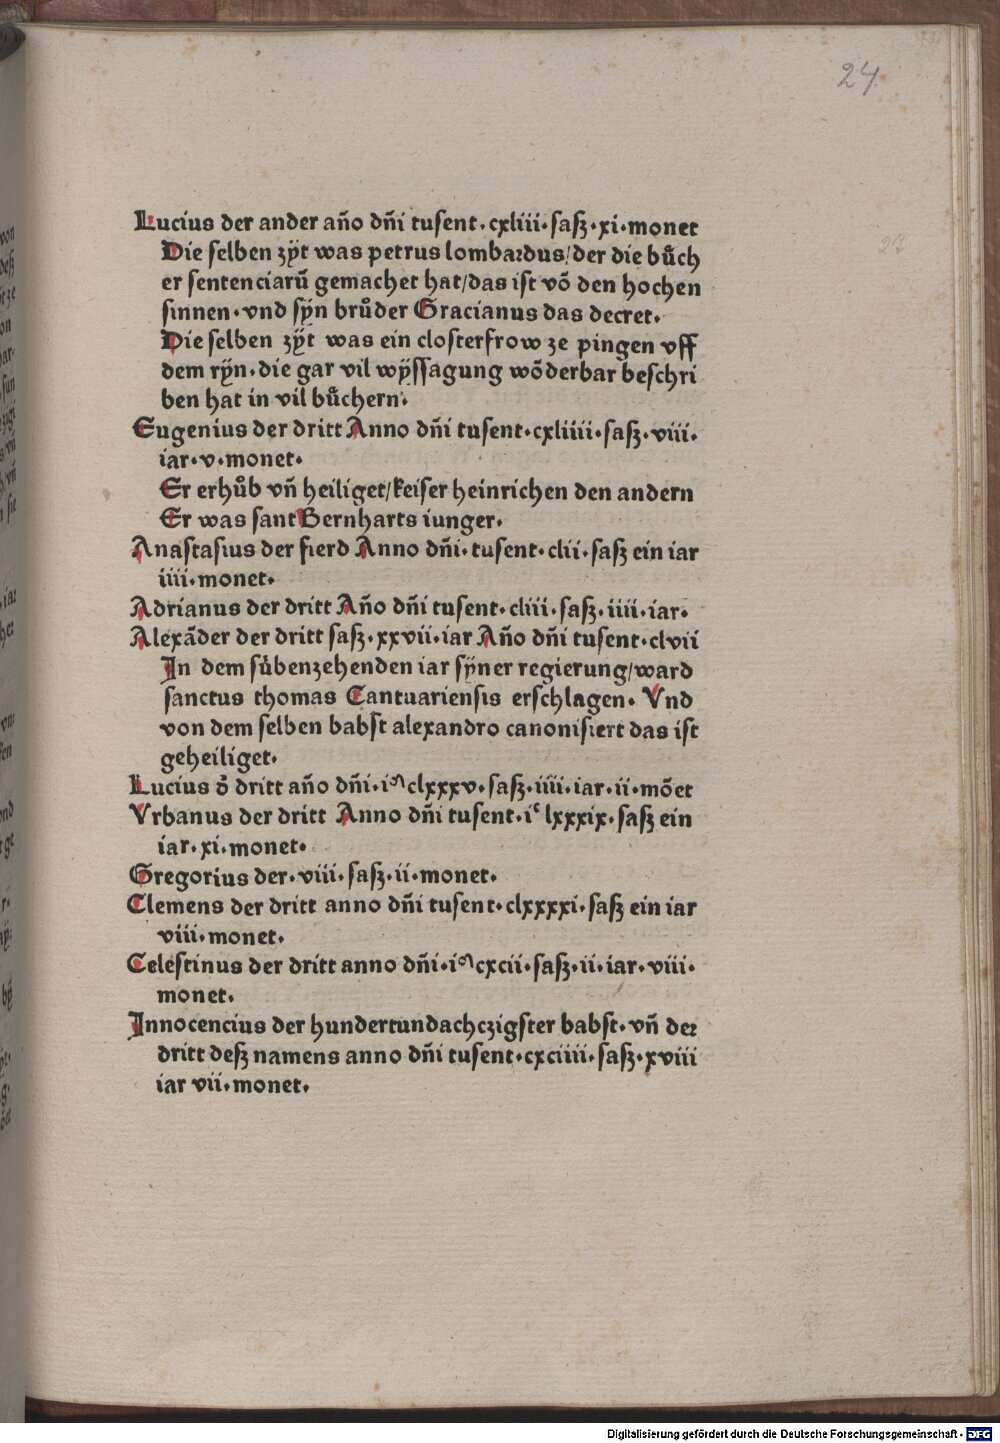 24
Lucius der ander año dñi tusent · cxliii · saſʒ · xi · monet
Die selben zÿt was petrus lombardus/ der die bůch
er sentenciarū gemachet hat/ das ist võ den hochen
sinnen · vnd sÿn brůder Gracianus das decret.
Die selben zÿt was ein closterfrow ze pingen vff
dem rÿn · die gar vil wÿssagung wõderbar beschri
ben hat in vil bůchern.
Eugenius der dritt Anno dñi tusent · cxliiii · saſʒ · viii ·
iar · v · monet.
Er erhůb vñ heiliget/ keiser heinrichen den andern
Er was sant Bernharts iunger.
Anastasius der fierd Anno dñi · tusent · clii · saſʒ ein iar
iiii · monet.
Adrianus der dritt Año dñi tusent · cliii · saſʒ · iiii · iar ·
Alexãder der dritt saſʒ · xxvii · iar Año dñi tusent · clvii
In dem sůbenzehenden iar sÿner regierung/ ward
sanctus thomas Cantuariensis erschlagen · Vnd
von dem selben babst alexandro canonisiert das ist
geheiliget.
Lucius ð dritt año dñi · iᶜ clxxxv · saſʒ · iiii · iar · ii · mõet
Vrbanus der dritt Anno dñi tusent · iᶜ lxxxix · saſʒ ein
iar · xi · monet.
Gregorius der · viii · saſʒ · ii · monet.
Clemens der dritt anno dñi tusent · clxxxxi · saſʒ ein iar
viii · monet.
Celestinus der dritt anno dñi · iᶜ cxcii · saſʒ · ii · iar · viii ·
monet.
Innocencius der hundertundachczigster babst · vñ der
dritt deſʒ namens anno dñi tusent · cxciiii · saſʒ · xviii
iar vii · monet.
Digitalisierung gefördert durch die Deutsche Forschungsgemeinschaft - DFG